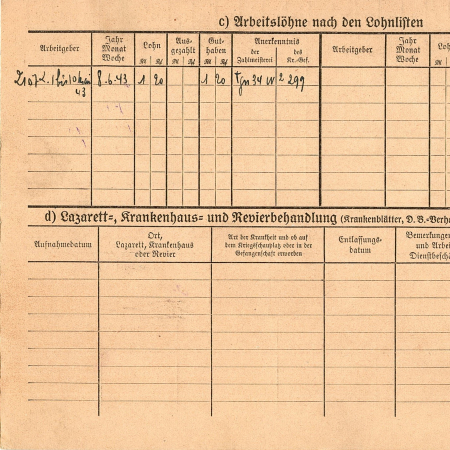 c) Arbeitslöhne nach den Lohnlisten
Arbeitgeber Jahr Monat Woche Lohn ℛℳ ₰ Ausgezahlt ℛℳ ₰ Guthaben ℛℳ ₰ Anerkenntnis der Zahlmeisterei des Kr.-Gef. Arbeitgeber Jahr Monat Woche
8.6.43 1 20 1 20 299
43
d) Lazarett-, Krankenhaus- und Revierbehandlung (Krankenblätter, D. B.-Verha
Aufnahmedatum Ort, Lazarett, Krankenhaus oder Revier Art der Krankheit und ob auf dem Kriegsschauplatz oder in der Gefangenschaft erworben Entlassungsdatum Bemerkungen und Arbei Dienstbeschä